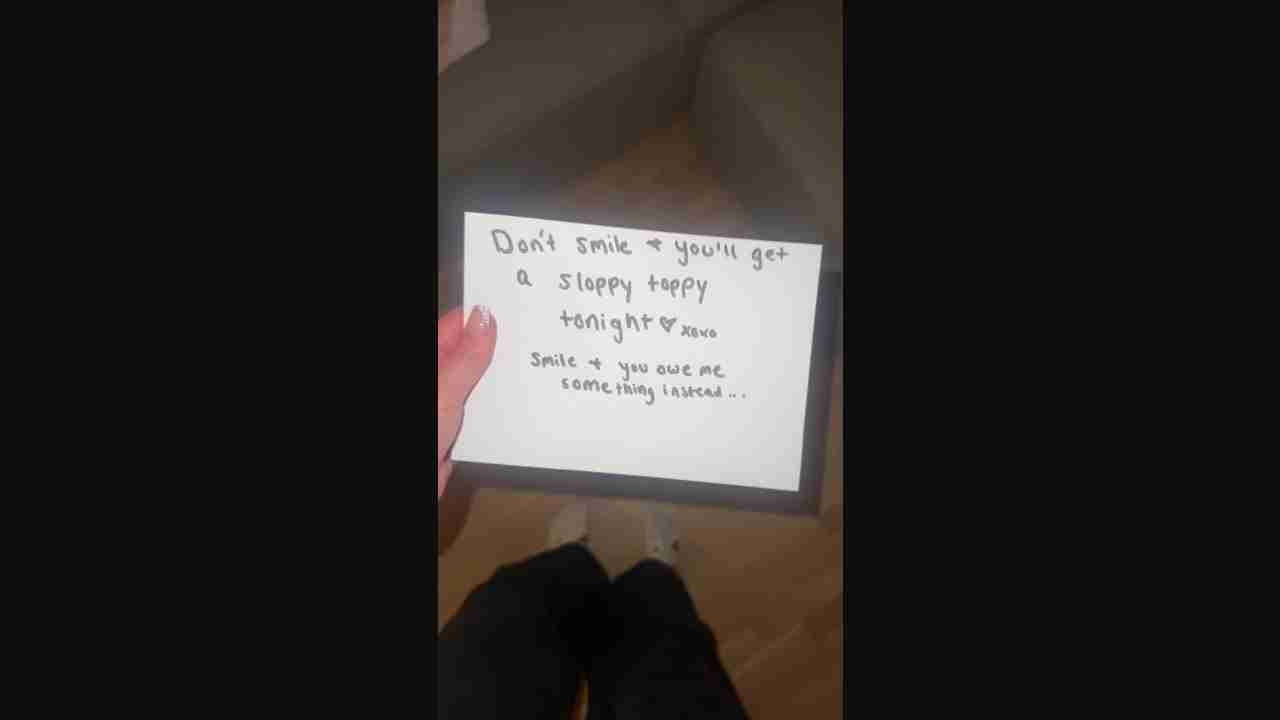 Don't smile + you'll get
a sloppy toppy
tonight ♡ xoxo
Smile + you owe me
something instead...